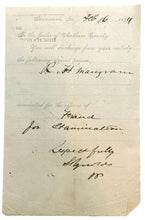 Savannah, Ga. Feb 16 1874
To the Jailor of Chatham County:
You will discharge from your custody
the following named person
R. H. Mangram
committed for the offence of
Fraud
for Examination
Respectfully